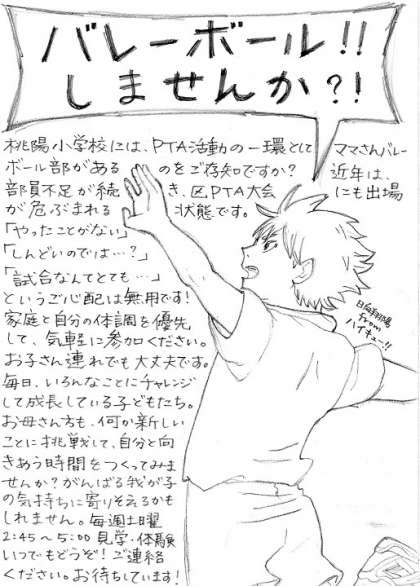 バレーボール!!
しませんか?!
桃陽小学校には、PTA活動の一環として ママさんバレー
ボール部があるのをご存知ですか? 近年は、
部員不足が続き、区PTA大会にも出場
が危ぶまれる状態です。
「やったことがない」
「しんどいのでは…?」
「試合なんてとても…」
というご心配は無用です!
家庭と自分の体調を優先
して、気軽に参加ください。
お子さん連れでも大丈夫です。
毎日、いろんなことにチャレンジ
して成長している子どもたち。
お母さん方も、何か新しい
ことに挑戦して、自分と向
きあう時間をつくってみま
せんか?がんばる我が子
の気持ちに寄りそえるかも
しれません。毎週土曜
2:45~5:00 見学・体験
いつでもどうぞ!ご連絡
ください。お待ちしています!
日向翔陽
from
ハイキュー!!